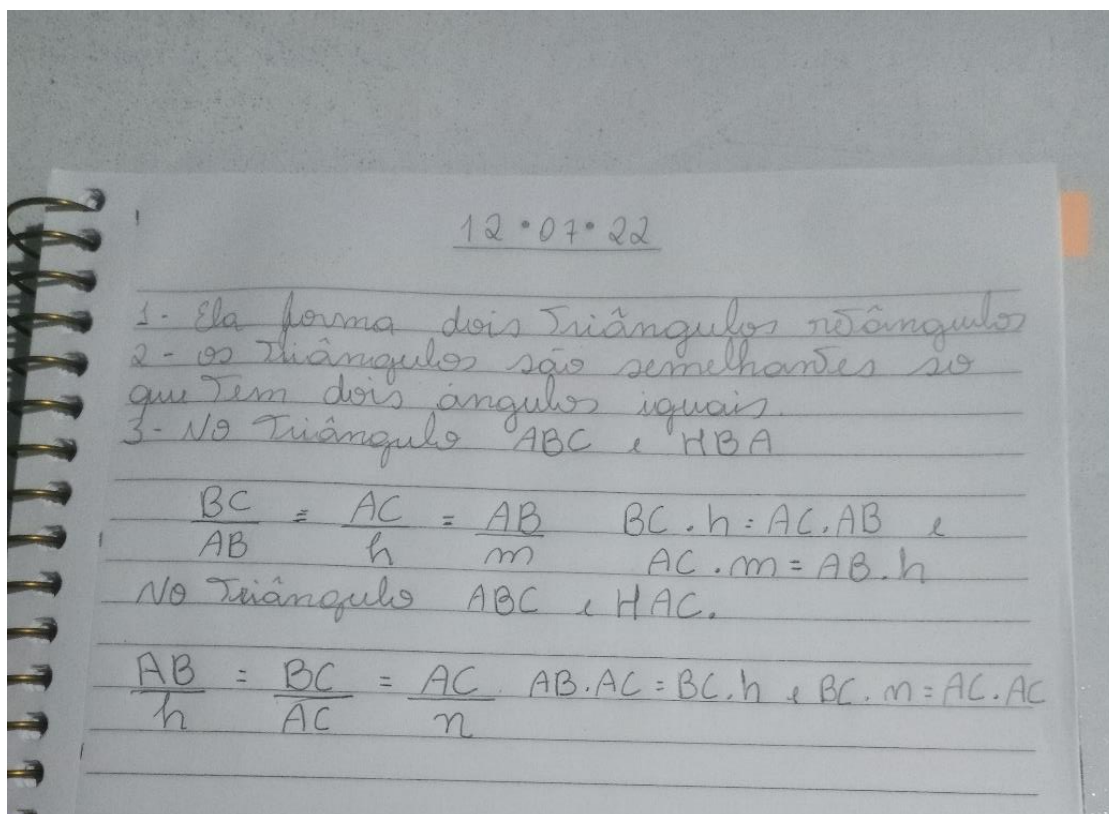 12.07.22
1- Ela forma dois Triângulos retângulos
2- os Triângulos são semelhantes so
que Tem dois ângulos iguais.
3- No Triângulo ABC e HBA
BC/AB = AC/h = AB/m BC.h = AC.AB e
AC.m = AB.h
No Triângulo ABC e HAC.
AB/h = BC/AC = AC/n AB.AC = BC.h e BC.n = AC.AC